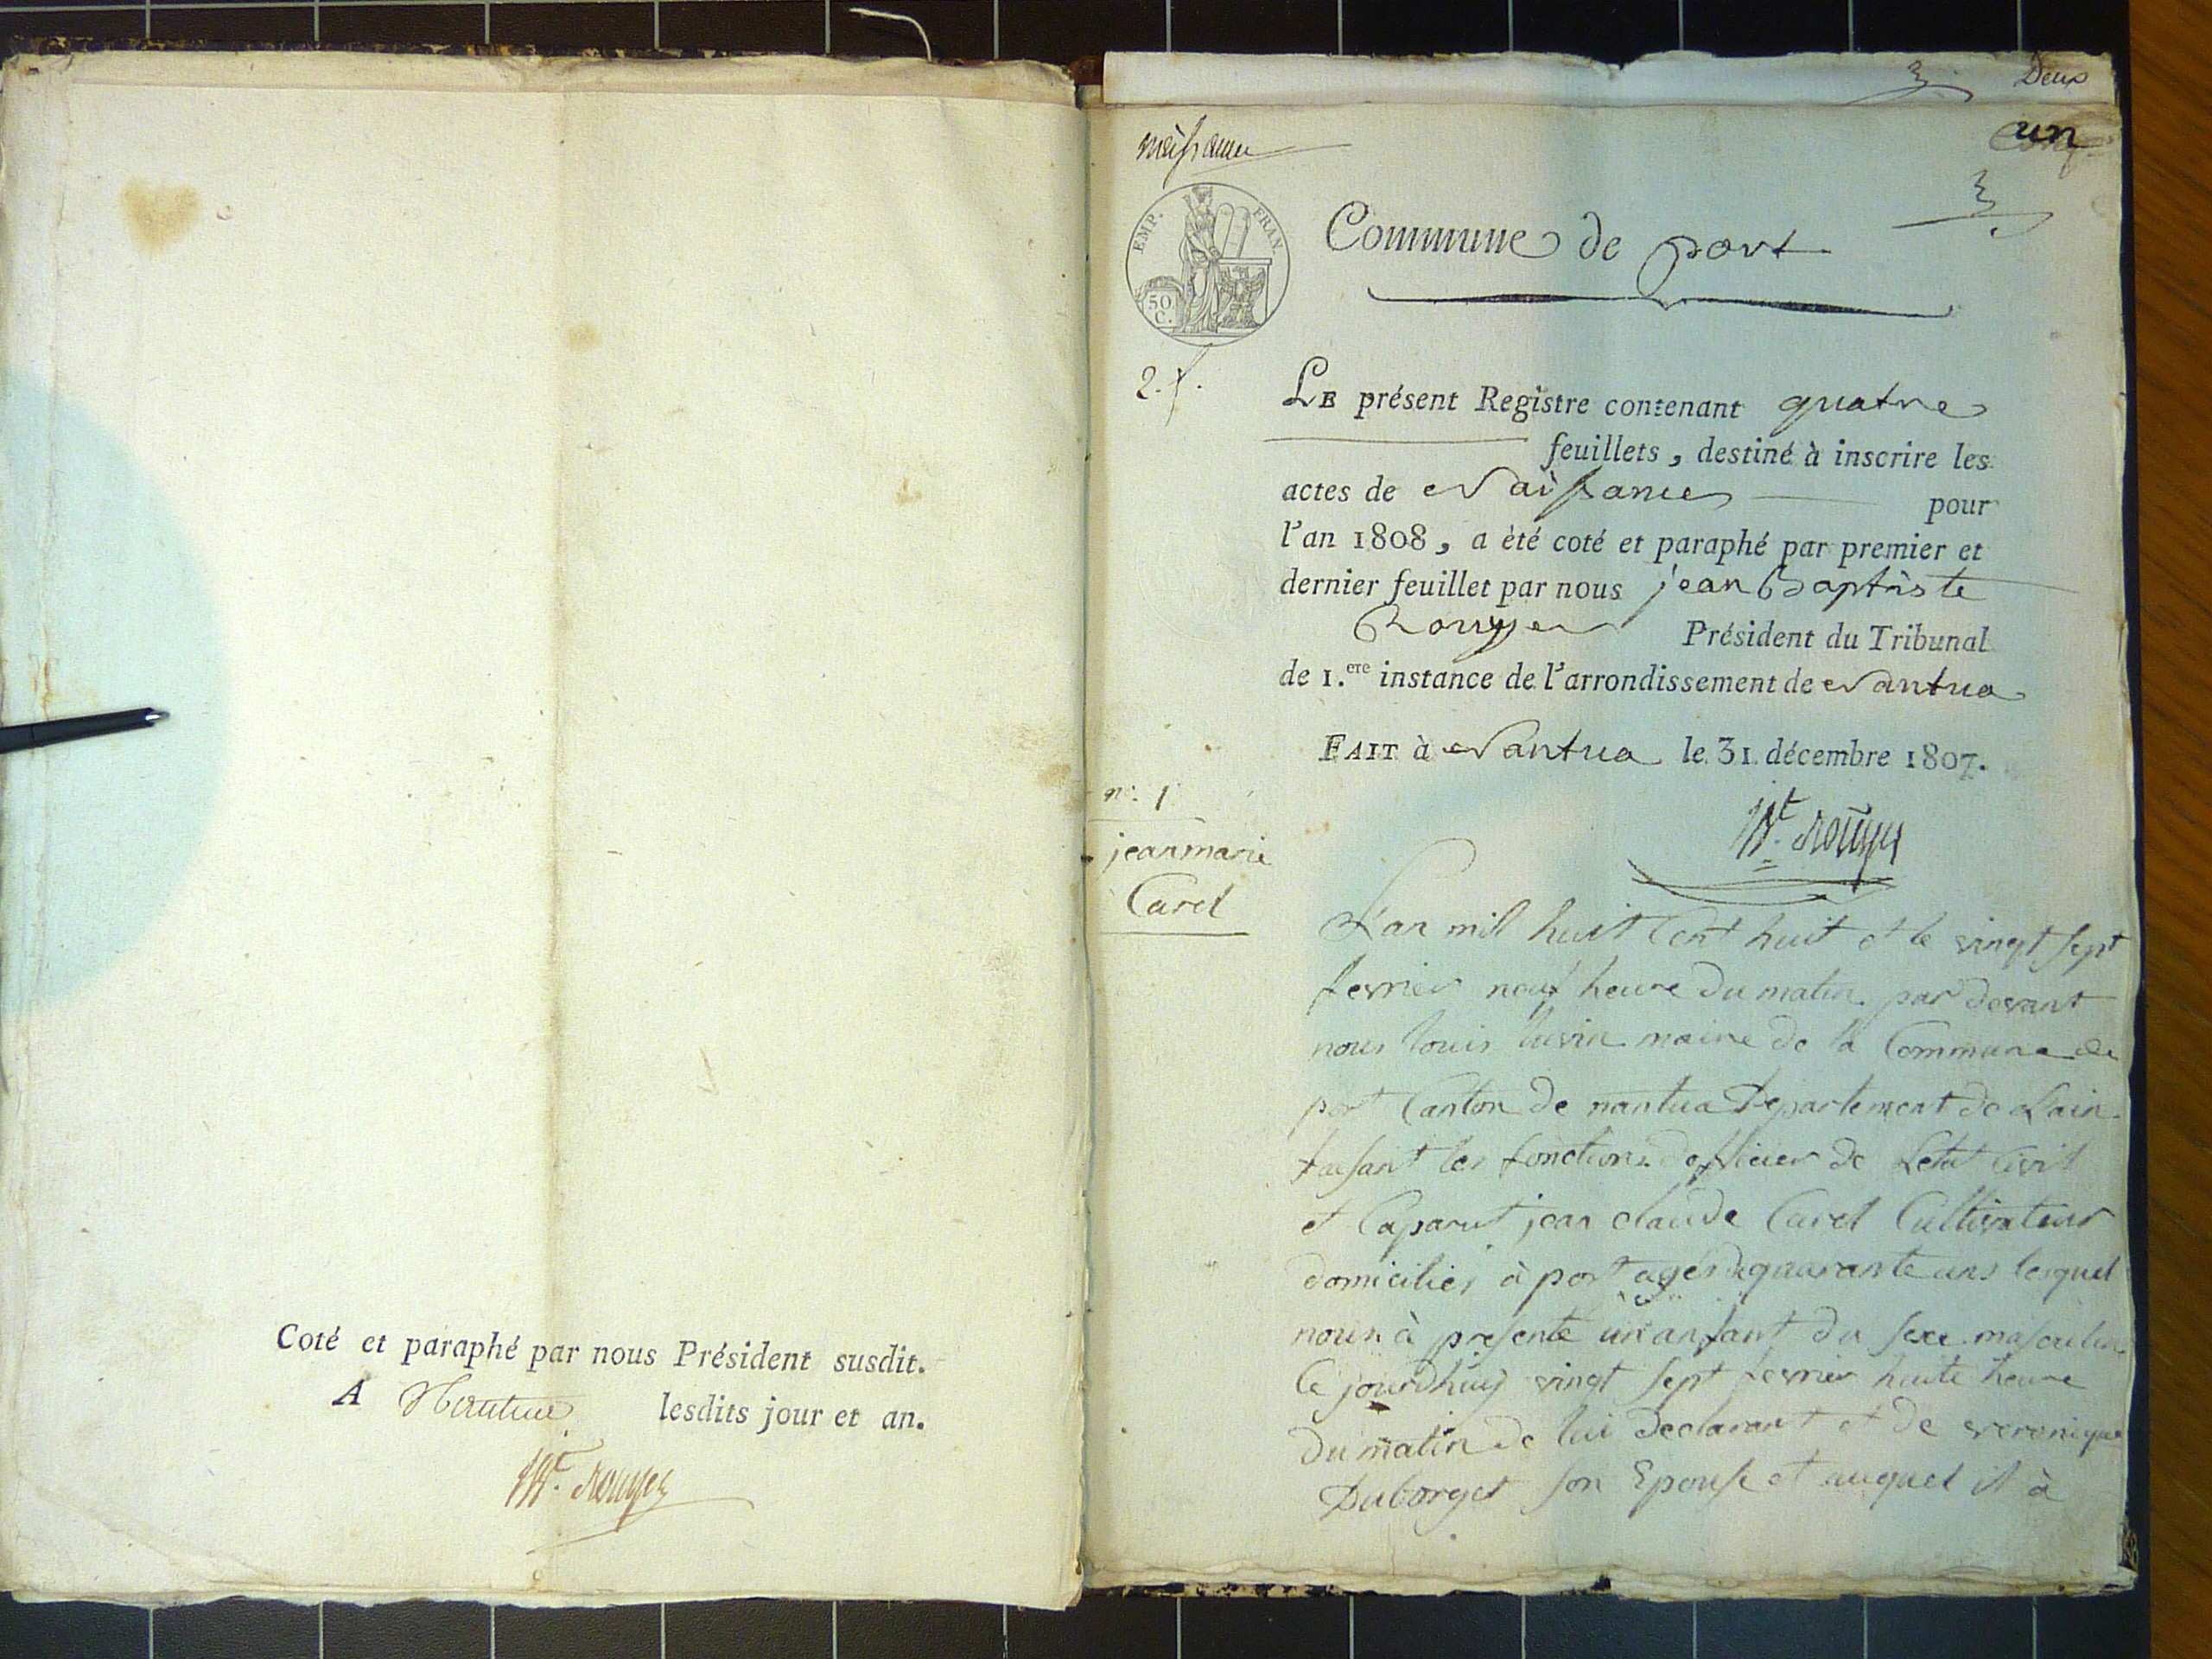 Coté et paraphé par nous Président susdit.
A Nantua lesdits jour et an.
Bt. Rouyer
Deux
un
naissance
EMP. FRAN.
50 C.
Commune de port
2.f.
LE présent Registre contenant quatre
feuillets, destiné à inscrire les
actes de Naissances pour
l'an 1808, a été coté et paraphé par premier et
dernier feuillet par nous jean Baptiste
Rouyer Président du Tribunal
de 1.ere instance de l'arrondissement de Nantua
FAIT à Nantua le 31 décembre 1807.
Bt. Rouyer
n°. 1
jean marie
Caret
L'an mil huit Cent huit et le vingt sept
fevrier neuf heure du matin par devant
nous louis maire de la Commune de
port Canton de nantua Departement de Lain
faisant les fonctions dofficier de Letat Civil
et Caparut jean claude Caret Cultivateur
domicilies à port agés de quarante ans lesquel
nous à presenté un anfant du sexe masculin
Ce jourdhuy vingt sept fevrier huite heure
du matin de lui declarant et de veronique
Duborget son Epouse et auquel il à